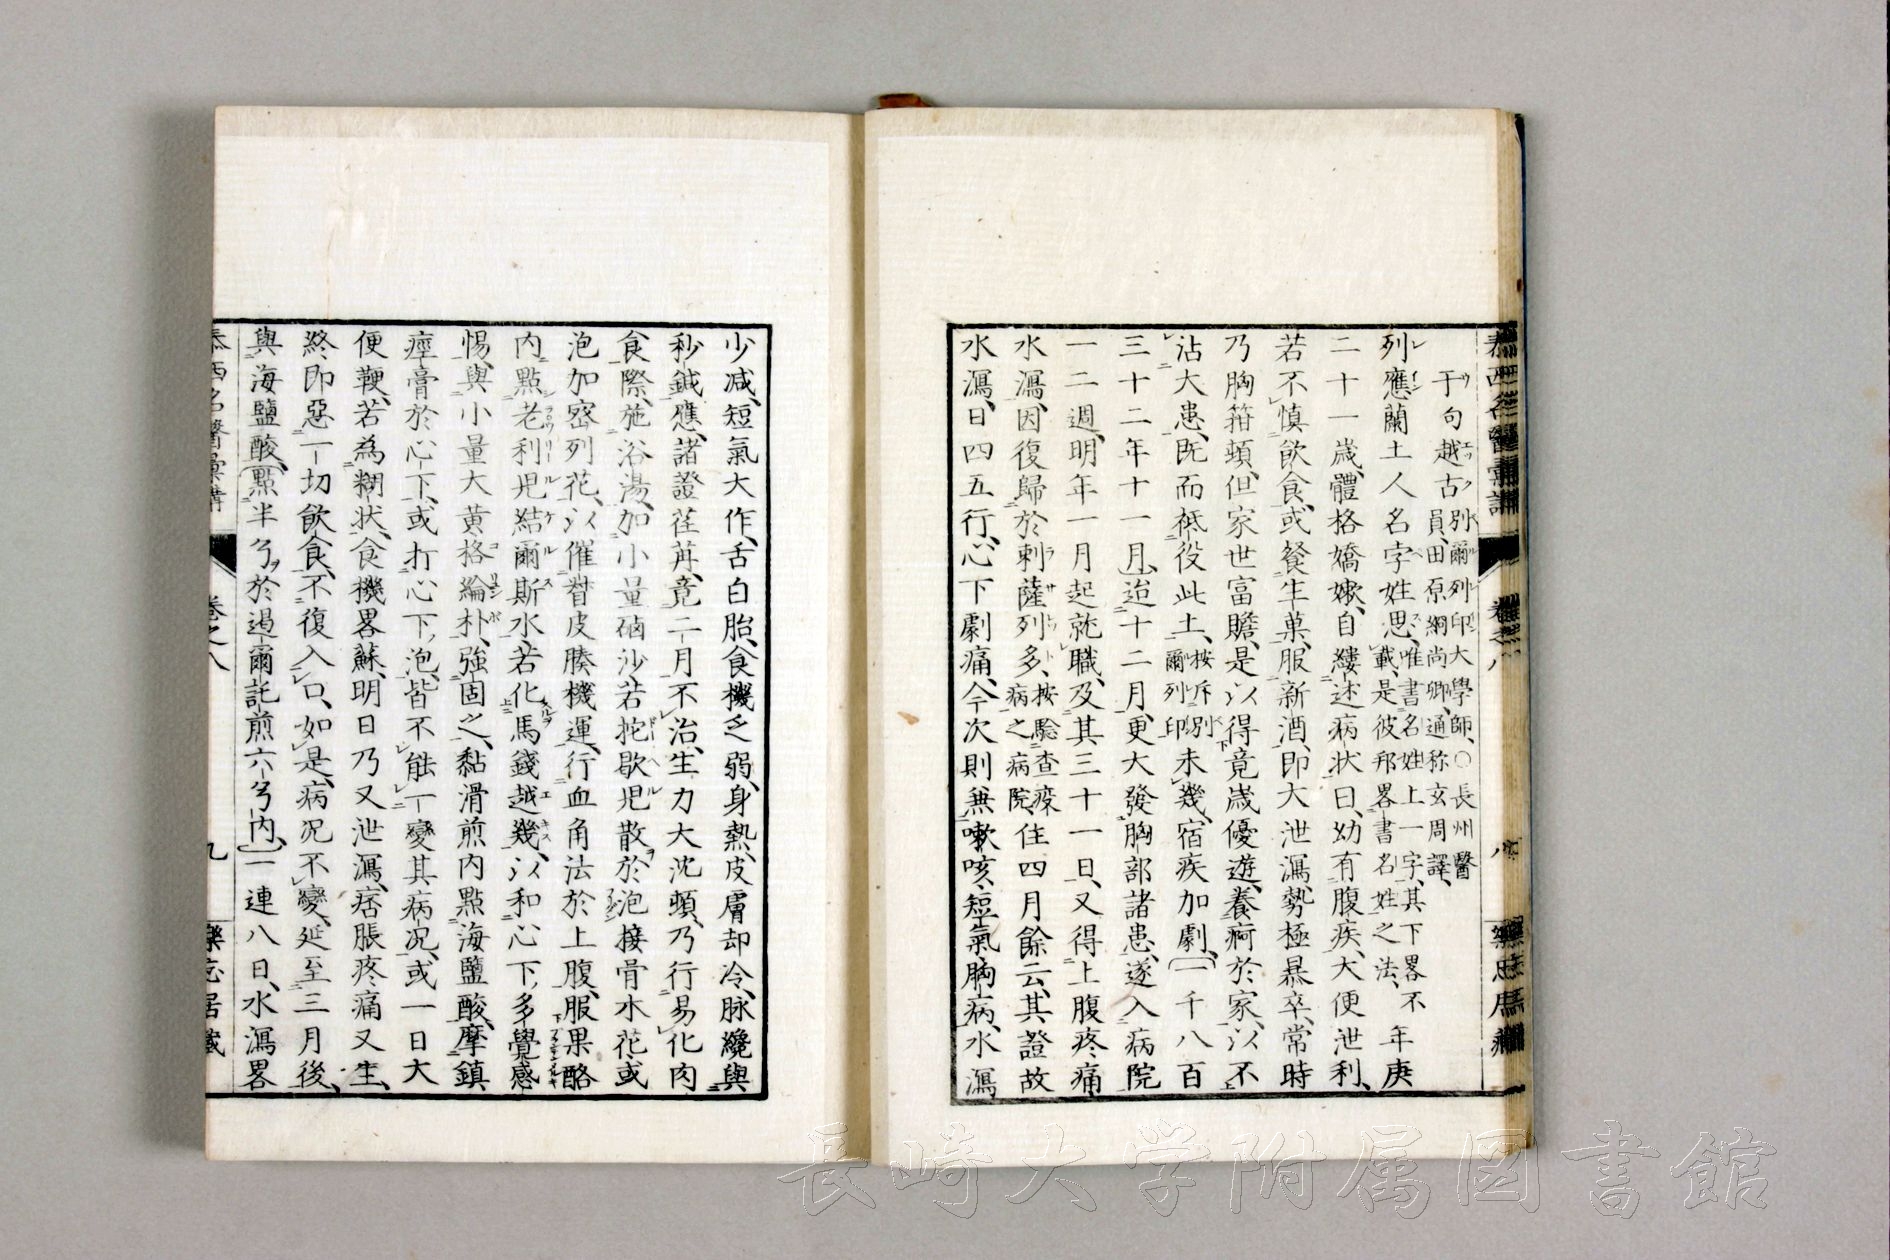 泰西名醫彙講 卷之八 八 樂忘居藏
于句越古別爾列印大學師、〇長州醫
員、田原綱尚卿、通称玄周譯、
列應蘭土人名字姓思、唯書名姓上一字、其下畧不載、是彼邦畧書名姓之法、年庚
二十一歳、體格嬌嫰、自縷述病状曰、幼有腹疾、大便泄利、
若不慎飲食、或餐生菓、服新酒、即大泄瀉、勢極暴卒、常時
乃胸箝頓、但家世富贍、是以得竟歳優遊、養痾於家、以不
沾大患、既而祗役此土、按斥別爾列印未幾、宿疾加劇、(一千八百
三十二年十一月、)迨十二月、更大發胸部諸患、遂入病院
一二週、明年一月起就職、及其三十一日、又得上腹疼痛
水瀉、因復歸於剌薩列多、按驗查疫病之病院、住四月餘云、其證故
水瀉、日四五行、心下劇痛、今次則無嗽咳、短氣胸病、水瀉
少减、短氣大作、舌白胎、食機乏弱、身熱、皮膚却冷、脉纔與
秒鍼應、諸證荏苒、竟二月不治、生力大沈頓、乃行易化肉
食際、施浴湯、加小量硇沙、若抡歇児散於泡接骨水花、或
泡加密列花、以催督皮腠機運、行血角法於上腹、服果酪
内點老利児結爾斯水、若化馬錢越幾、以和心下、多覺感
惕、與小量大黄格綸朴、強固之、黏滑煎内點海鹽酸、摩鎮
痙膏於心下、或打心下、泡、皆不能一變其病况、或一日大
便鞕、若為糊状、食機畧蘇、明日乃又泄瀉、痞脹疼痛又生、
終即惡一切飲食、不復入口、如是、病况不變、延至三月後、
與海鹽酸、(點半弓於過爾託煎六弓内、)一連八日、水瀉畧
泰西名醫彙講 卷之八 九 樂忘居藏
長崎大学附属図書館